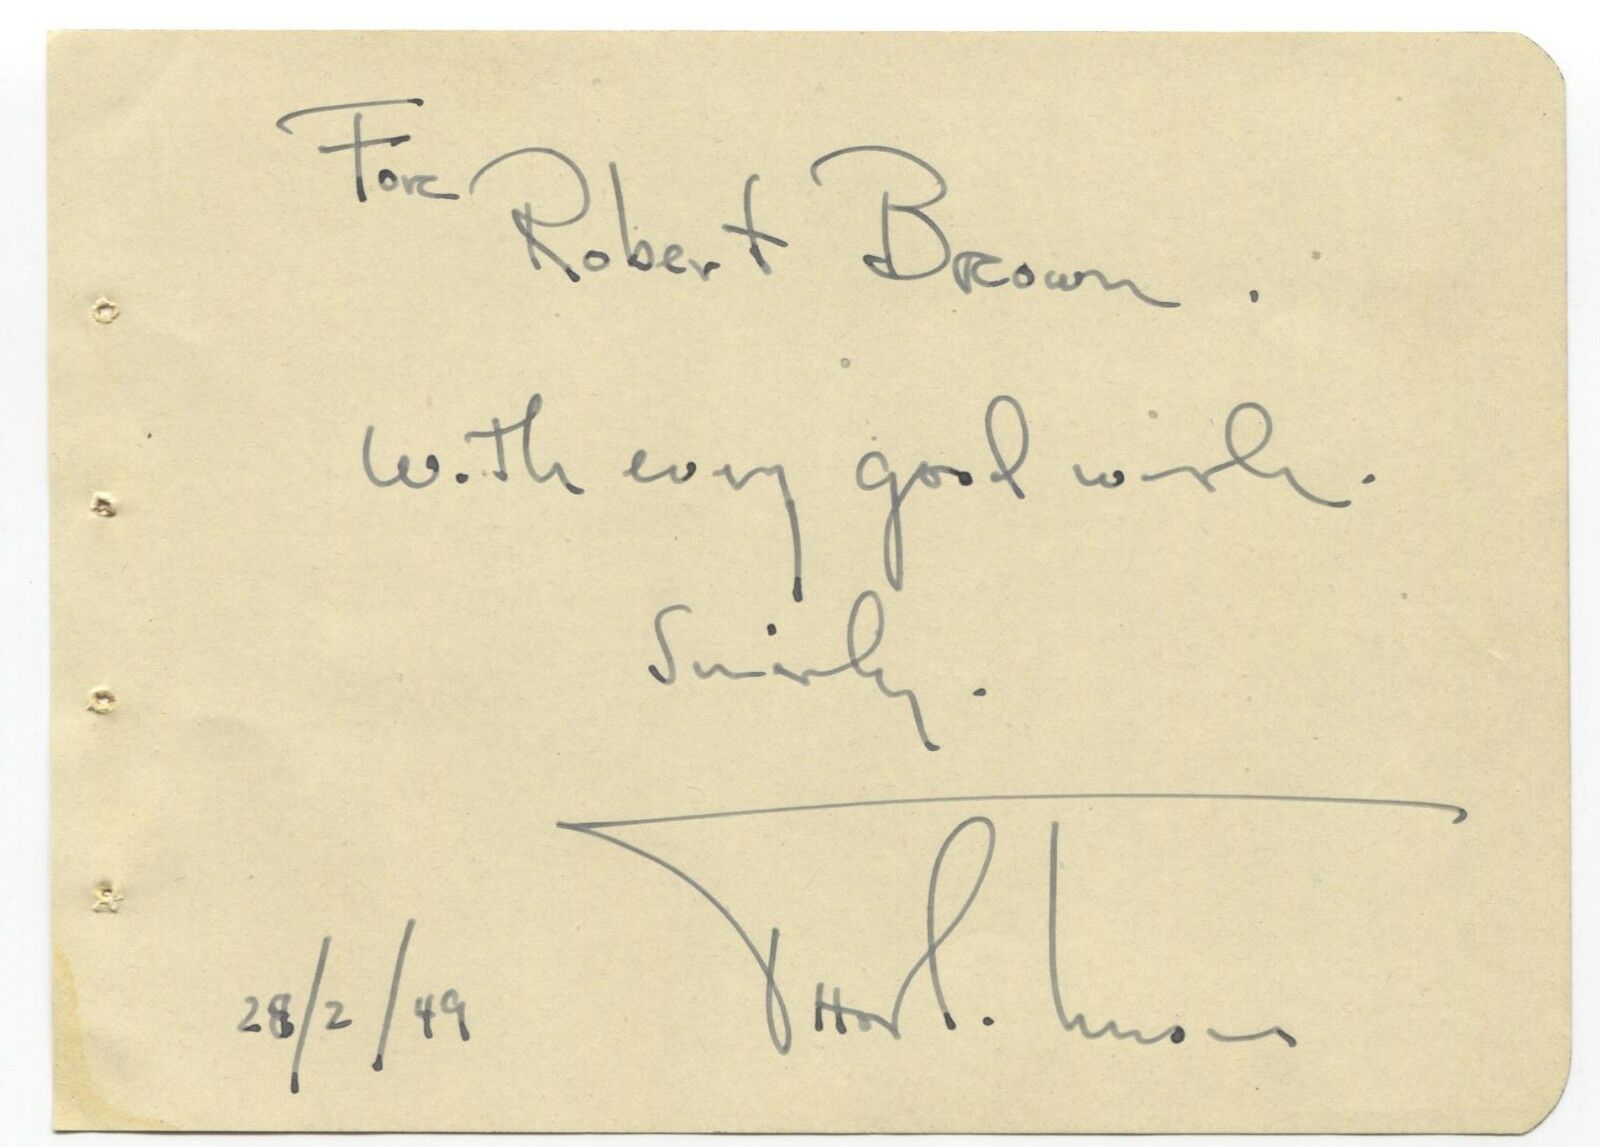 For
Robert Brown.
With every good wish.
Sincerely.
28/2/49 Thor L.